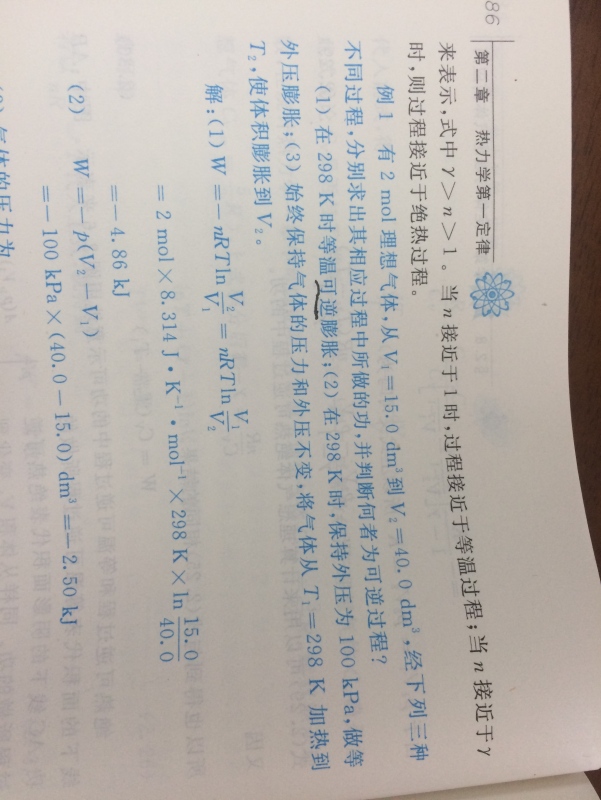 86
第二章 热力学第一定律
来表示,式中 γ＞n＞1。当 n 接近于1时,过程接近于等温过程;当 n 接近于 γ
时,则过程接近于绝热过程。
例1 有 2 mol 理想气体,从 V₁=15.0 dm³ 到 V₂=40.0 dm³,经下列三种
不同过程,分别求出其相应过程中所做的功,并判断何者为可逆过程?
(1) 在 298 K 时等温可逆膨胀;(2) 在 298 K 时,保持外压为 100 kPa,做等
外压膨胀;(3) 始终保持气体的压力和外压不变,将气体从 T₁=298 K 加热到
T₂,使体积膨胀到 V₂。
解:(1) W=-nRTln V₂/V₁=nRTln V₁/V₂
=2 mol×8.314 J·K⁻¹·mol⁻¹×298 K×ln 15.0/40.0
=-4.86 kJ
(2) W=-p(V₂-V₁)
=-100 kPa×(40.0-15.0) dm³=-2.50 kJ
气体的压力为